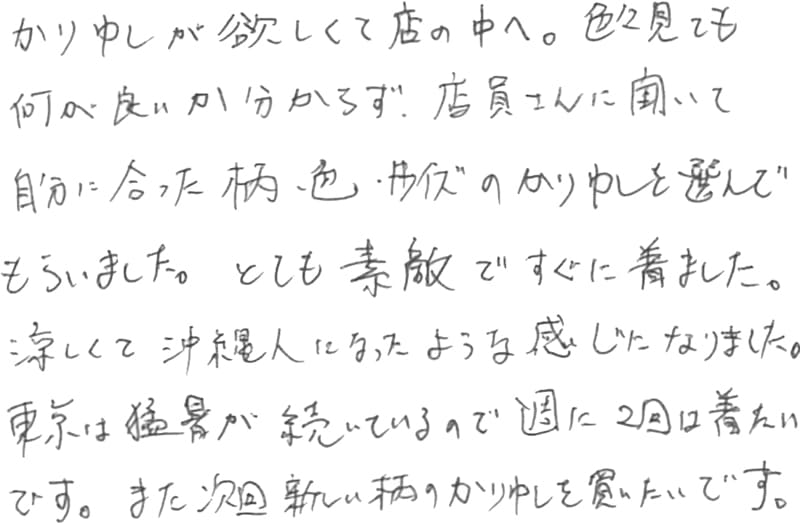 かりゆしが欲しくて店の中へ。色々見ても
何が良いか分からず、店員さんに聞いて
自分に合った柄、色、サイズのかりゆしを選んで
もらいました。とても素敵ですぐに着ました。
涼しくて沖縄人になったような感じになりました。
東京は猛暑が続いているので週に2回は着たい
です。また次回新しい柄のかりゆしを買いたいです。